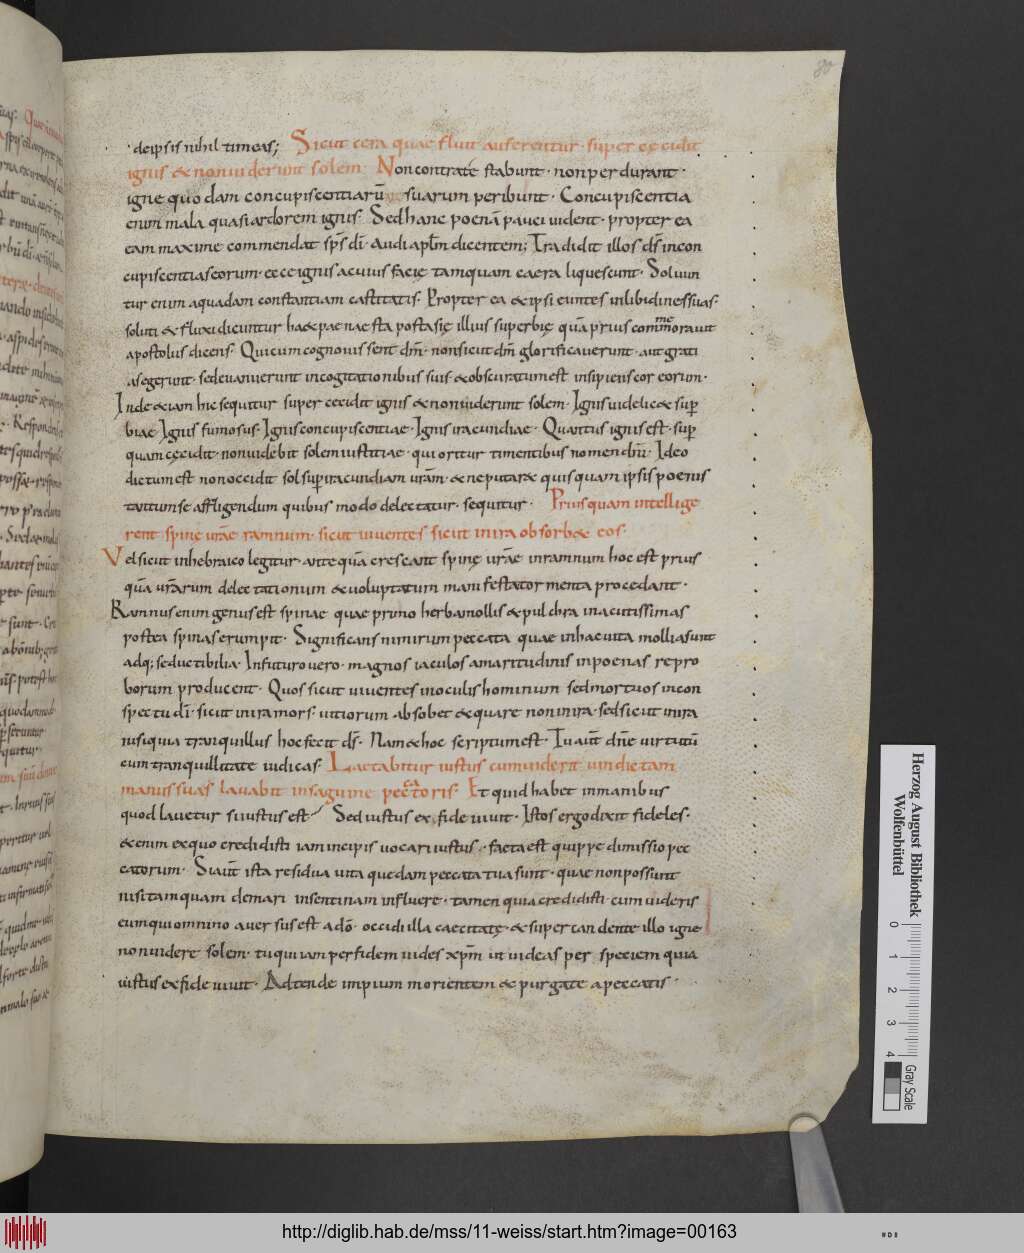 80
deipsis nihil timeas; Sicut cera quae fluit auferentur · super cecidit
ignis & non uiderunt solem · Non contra te stabunt · non perdurant ·
igne quodam concupiscentiarū suarum peribunt · Concupiscentia
enim mala quasi ardorem ignis · Sed hanc poenā pauci uident · propter ea
eam maxime commendat sp̄s dī · Audi aplm̄ dicentem; Tradidit illos d̄s incon
cupiscentias eorum · ecce ignis a cuius facię tamquam caera liquescunt · Soluun
tur enim aquadam constantiam castitatis · Propter ea & ipsi euntes inlibidines suas ·
soluti & fluxi dicuntur haec paenae sta postasię illius superbię quā prius commemorauit
apostolus dicens · Qui cum cognouissent dm̄ · non sicut dm̄ glorificauerunt · aut grati
as egerunt · sed euanuerunt in cogitationibus suis · & obscuratum est insipiens cor eorum ·
Inde etiam hic sequitur super cecidit ignis & non uiderunt solem · Ignis uidelic& sup̄
biae Ignis fumosus · Ignis concupiscentiae · Ignis iracundiae · Quantus ignis est · sup̄
quam cęcidit · non uidebit solem iustitiae · qui oritur timentibus nomen dn̄i · Ideo
dictum est non occidit sol super iracundiam urām · & ne putar& quisquam ipsis poenis
tantum se affligendum quibus modo delectatur · sequitur · Prius quam intellige
rent spinę urāe ramnum · sicut uiuentes sicut in ira obsorb& eos ·
Vel sicut in hebraico legitur · ante quā crescant spinę urāe in ramnum hoc est prius
quā urārum delectationum & uoluptatum manifesta tormenta procedant ·
Ramnus enim genus est spinae quae primo herba mollis & pulchra in acutissimas
postea spinas erumpit · Significans nimirum peccata quae in hac uita mollia sunt
adq; seductibilia · In futuro uero · magnos iaculos amaritudinis in poenas repro
borum producent · Quos sicut uiuentes in oculis hominum sed mortuos in con
spectu dī · sicut in ira mors · uitiorum absobet & quare non in ira · sed sicut in ira
nisi quia tranquillus hoc fecit d̄s · Nam & hoc scriptum est · Tu aut̄ dn̄e uirtutū
cum tranquillitate iudicas · Laetabitur iustus cum uiderit uindictam
manus suas lauabit in saguine peccatoris · Et quid habet in manibus
quod lauetur si iustus est · Sed iustus ex fide uiuit · Istos ergo dixit fideles ·
& enim ex quo credidisti iam incipis uocari iustus · facta est quippe dimissio pec
catorum · Si aut̄ ista residua uita quedam peccata tua sunt · quae non possunt
nisi tamquam de mari in sentinam influere · tamen quia credidisti · cum uideris
eum qui omnino auersus est a dō · occidi illa caecitate · & super candente illo igne
non uidere solem · tu qui iam per fidem uides xpm̄ ut uideas per speciem quia
iustus ex fide uiuit · Adtende impium morientem & purgate a peccatis ·
Herzog August Bibliothek
Wolfenbüttel
0 1 2 3 4
Gray Scale
http://diglib.hab.de/mss/11-weiss/start.htm?image=00163